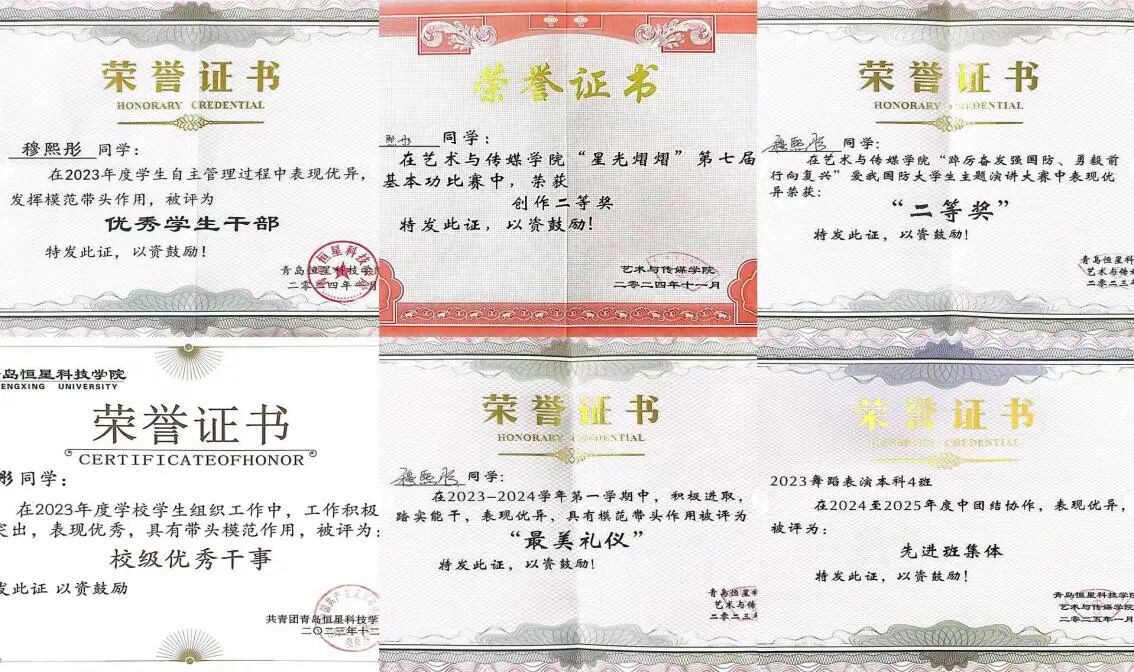 荣誉证书
HONORARY CREDENTIAL
穆熙彤 同学：
在2023年度学生自主管理过程中表现优异，
发挥模范带头作用，被评为
优秀学生干部
特发此证，以资鼓励！
青岛恒星科技学院
二〇二四年 月
荣誉证书
熙彤 同学：
在艺术与传媒学院“星光熠熠”第七届
基本功比赛中，荣获
创作二等奖
特发此证，以资鼓励！
艺术与传媒学院
二〇二四年十一月
荣誉证书
HONORARY CREDENTIAL
穆熙彤 同学：
在艺术与传媒学院“踔厉奋发强国防、勇毅前
行向复兴”爱我国防大学生主题演讲大赛中表现优
异荣获：
“二等奖”
特发此证，以资鼓励！
青岛恒星科
艺术与传
二〇二三年
青岛恒星科技学院
ENGXING UNIVERSITY
荣誉证书
CERTIFICATEOFHONOR
彤同学：
在2023年度学校学生组织工作中，工作积极
突出，表现优秀，具有带头模范作用，被评为：
校级优秀干事
发此证 以资鼓励
共青团青岛恒星科技学
二〇二三年十二
荣誉证书
HONORARY CREDENTIAL
穆熙彤 同学：
在2023-2024学年第一学期中，积极进取，
踏实能干，表现优异，具有模范带头作用被评为
“最美礼仪”
特发此证，以资鼓励！
青岛恒星科
艺术与传
二〇二三
荣誉证书
HONORARY CREDENTIAL
2023舞蹈表演本科4班
在2024至2025年度中团结协作，表现优异，
被评为：
先进班集体
特发此证，以资鼓励！
青岛恒星科技学院
艺术与传媒学院
二〇二五年一月